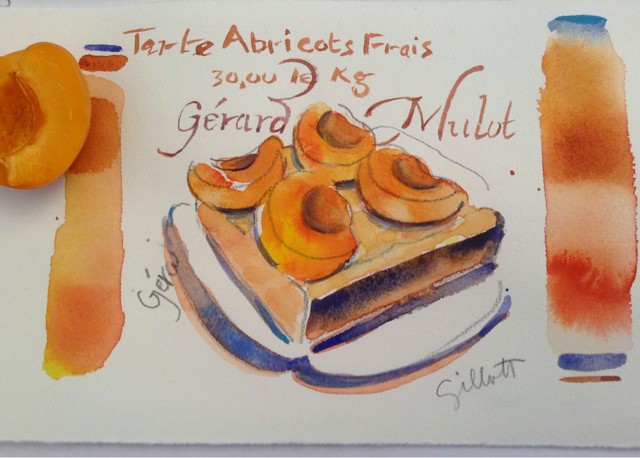 Tarte Abricots Frais
30,00 le Kg
Gérard Mulot
Géra
Gillott